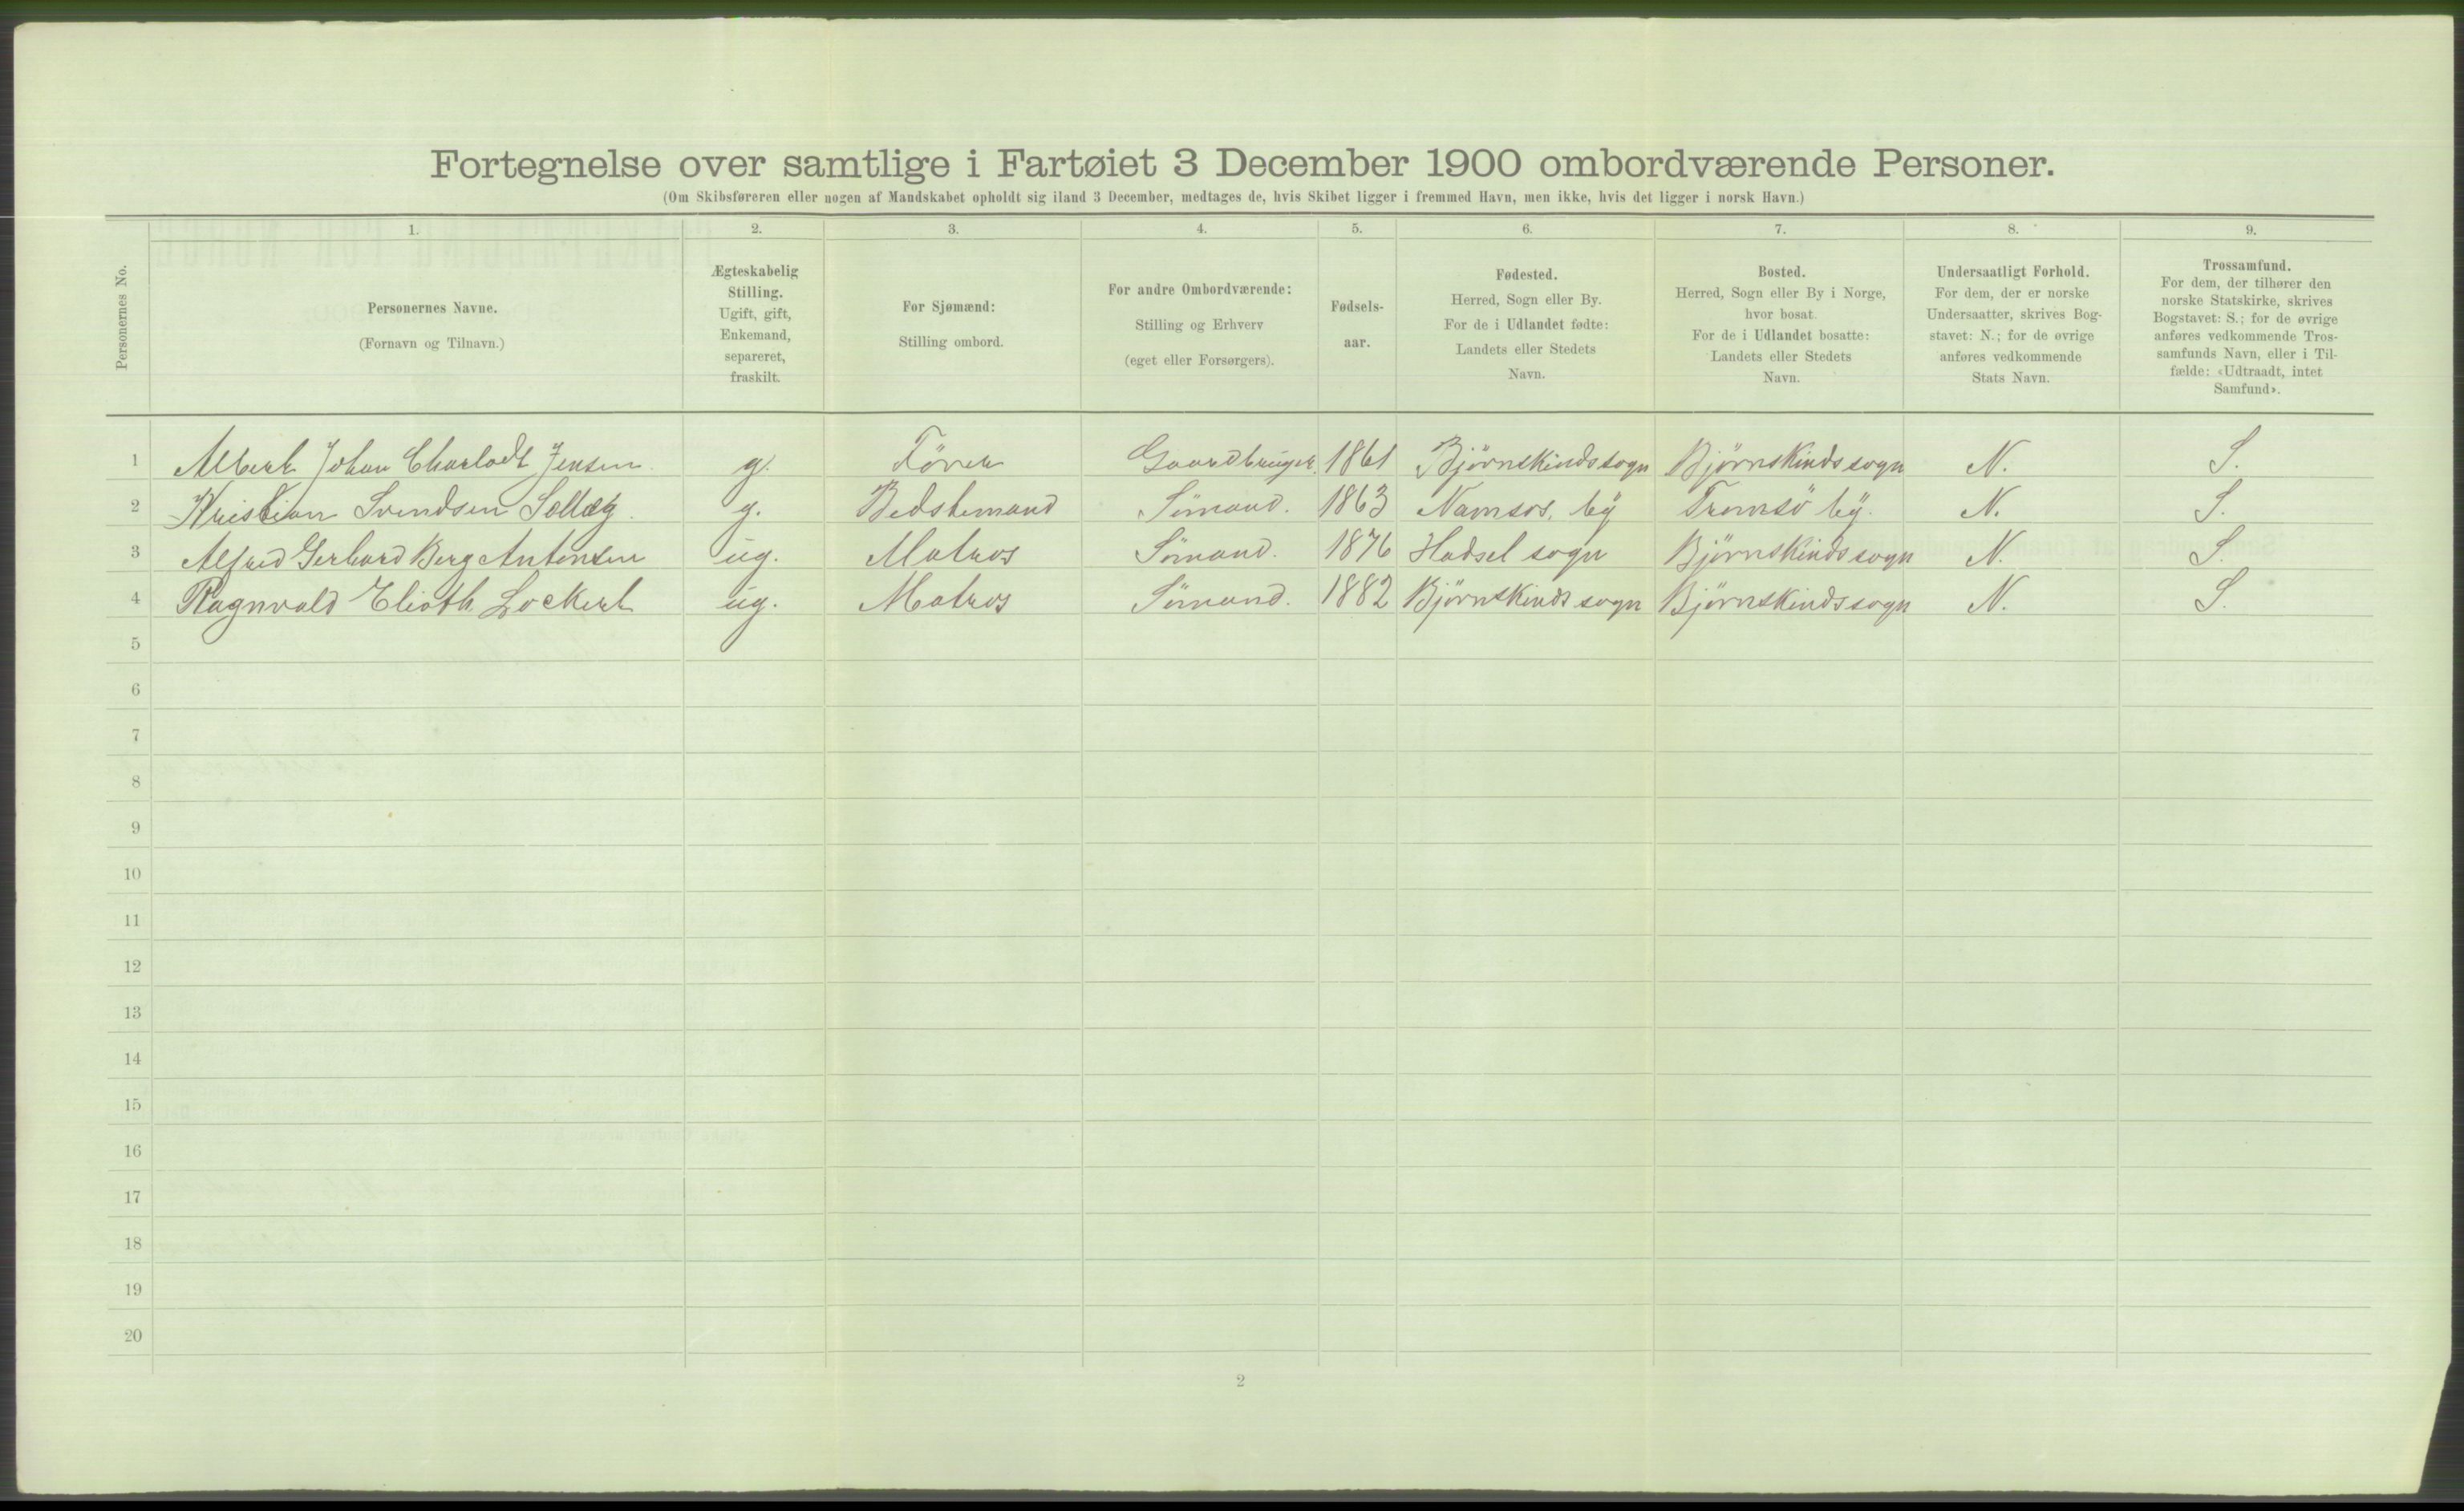 Fortegnelse over samtlige i Fartøiet 3 December 1900 ombordværende Personer.
(Om Skibsføreren eller nogen af Mandskabet opholdt sig iland 3 December, medtages de, hvis Skibet ligger i fremmed Havn, men ikke, hvis det ligger i norsk Havn.)
Personernes No.
1. 2. 3. 4. 5. 6. 7. 8. 9.
Personernes Navne.
(Fornavn og Tilnavn.)
Ægteskabelig
Stilling.
Ugift, gift,
Enkemand,
separeret,
fraskilt.
For Sjømænd:
Stilling ombord.
For andre Ombordværende:
Stilling og Erhverv
(eget eller Forsørgers).
Fødsels-
aar.
Fødested.
Herred, Sogn eller By.
For de i Udlandet fødte:
Landets eller Stedets
Navn.
Bosted.
Herred, Sogn eller By i Norge,
hvor bosat.
For de i Udlandet bosatte:
Landets eller Stedets
Navn.
Undersaatligt Forhold.
For dem, der er norske
Undersaatter, skrives Bog-
stavet: N.; for de øvrige
anføres vedkommende
Stats Navn.
Trossamfund.
For dem, der tilhører den
norske Statskirke, skrives
Bogstavet: S.; for de øvrige
anføres vedkommende Tros-
samfunds Navn, eller i Til-
fælde: «Udtraadt, intet
Samfund».
1 Albert Johan Charlodt Jensen g. Förer Gaardbruger. 1861 Björnskinds sogn Björnskinds sogn N. S.
2 Kristian Svendsen g. Bedstemand Sömand. 1863 Namsos, by Tromsö by. N. S.
3 Alfred Gerhard Berg Antonsen ug. Matros Sömand. 1876 Hadsel sogn Björnskinds sogn N. S.
4 Ragnvald Elioth Lockert ug. Matros Sömand. 1882 Björnskinds sogn Björnskinds sogn N. S.
5
6
7
8
9
10
11
12
13
14
15
16
17
18
19
20
2